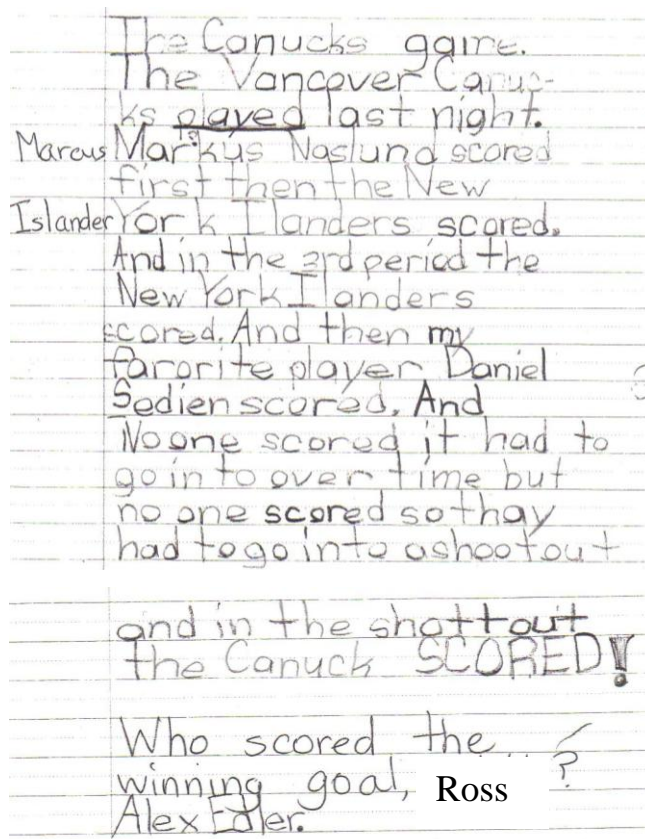 The Canucks game.
The Vancover Canuc-
ks played last night.
Marcus Markus Naslund scored
first then the New
Islander York Ilanders scored.
And in the 3rd period the
New York Ilanders
scored. And then my
farorite player Daniel
Sedien scored. And
No one scored it had to
go in to over time but
no one scored so thay
had to go into a shootout
and in the shottout
the Canuck SCORED!
Who scored the
winning goal, Ross ?
Alex Edler.